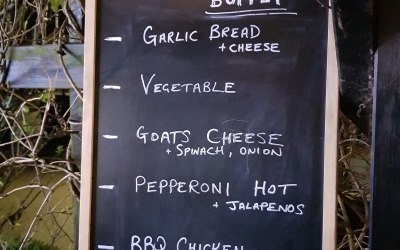 BUFFET
- GARLIC BREAD
+ CHEESE
- VEGETABLE
- GOATS CHEESE
+ SPINACH, ONION
- PEPPERONI HOT
+ JALAPENOS
- BBQ CHICKEN